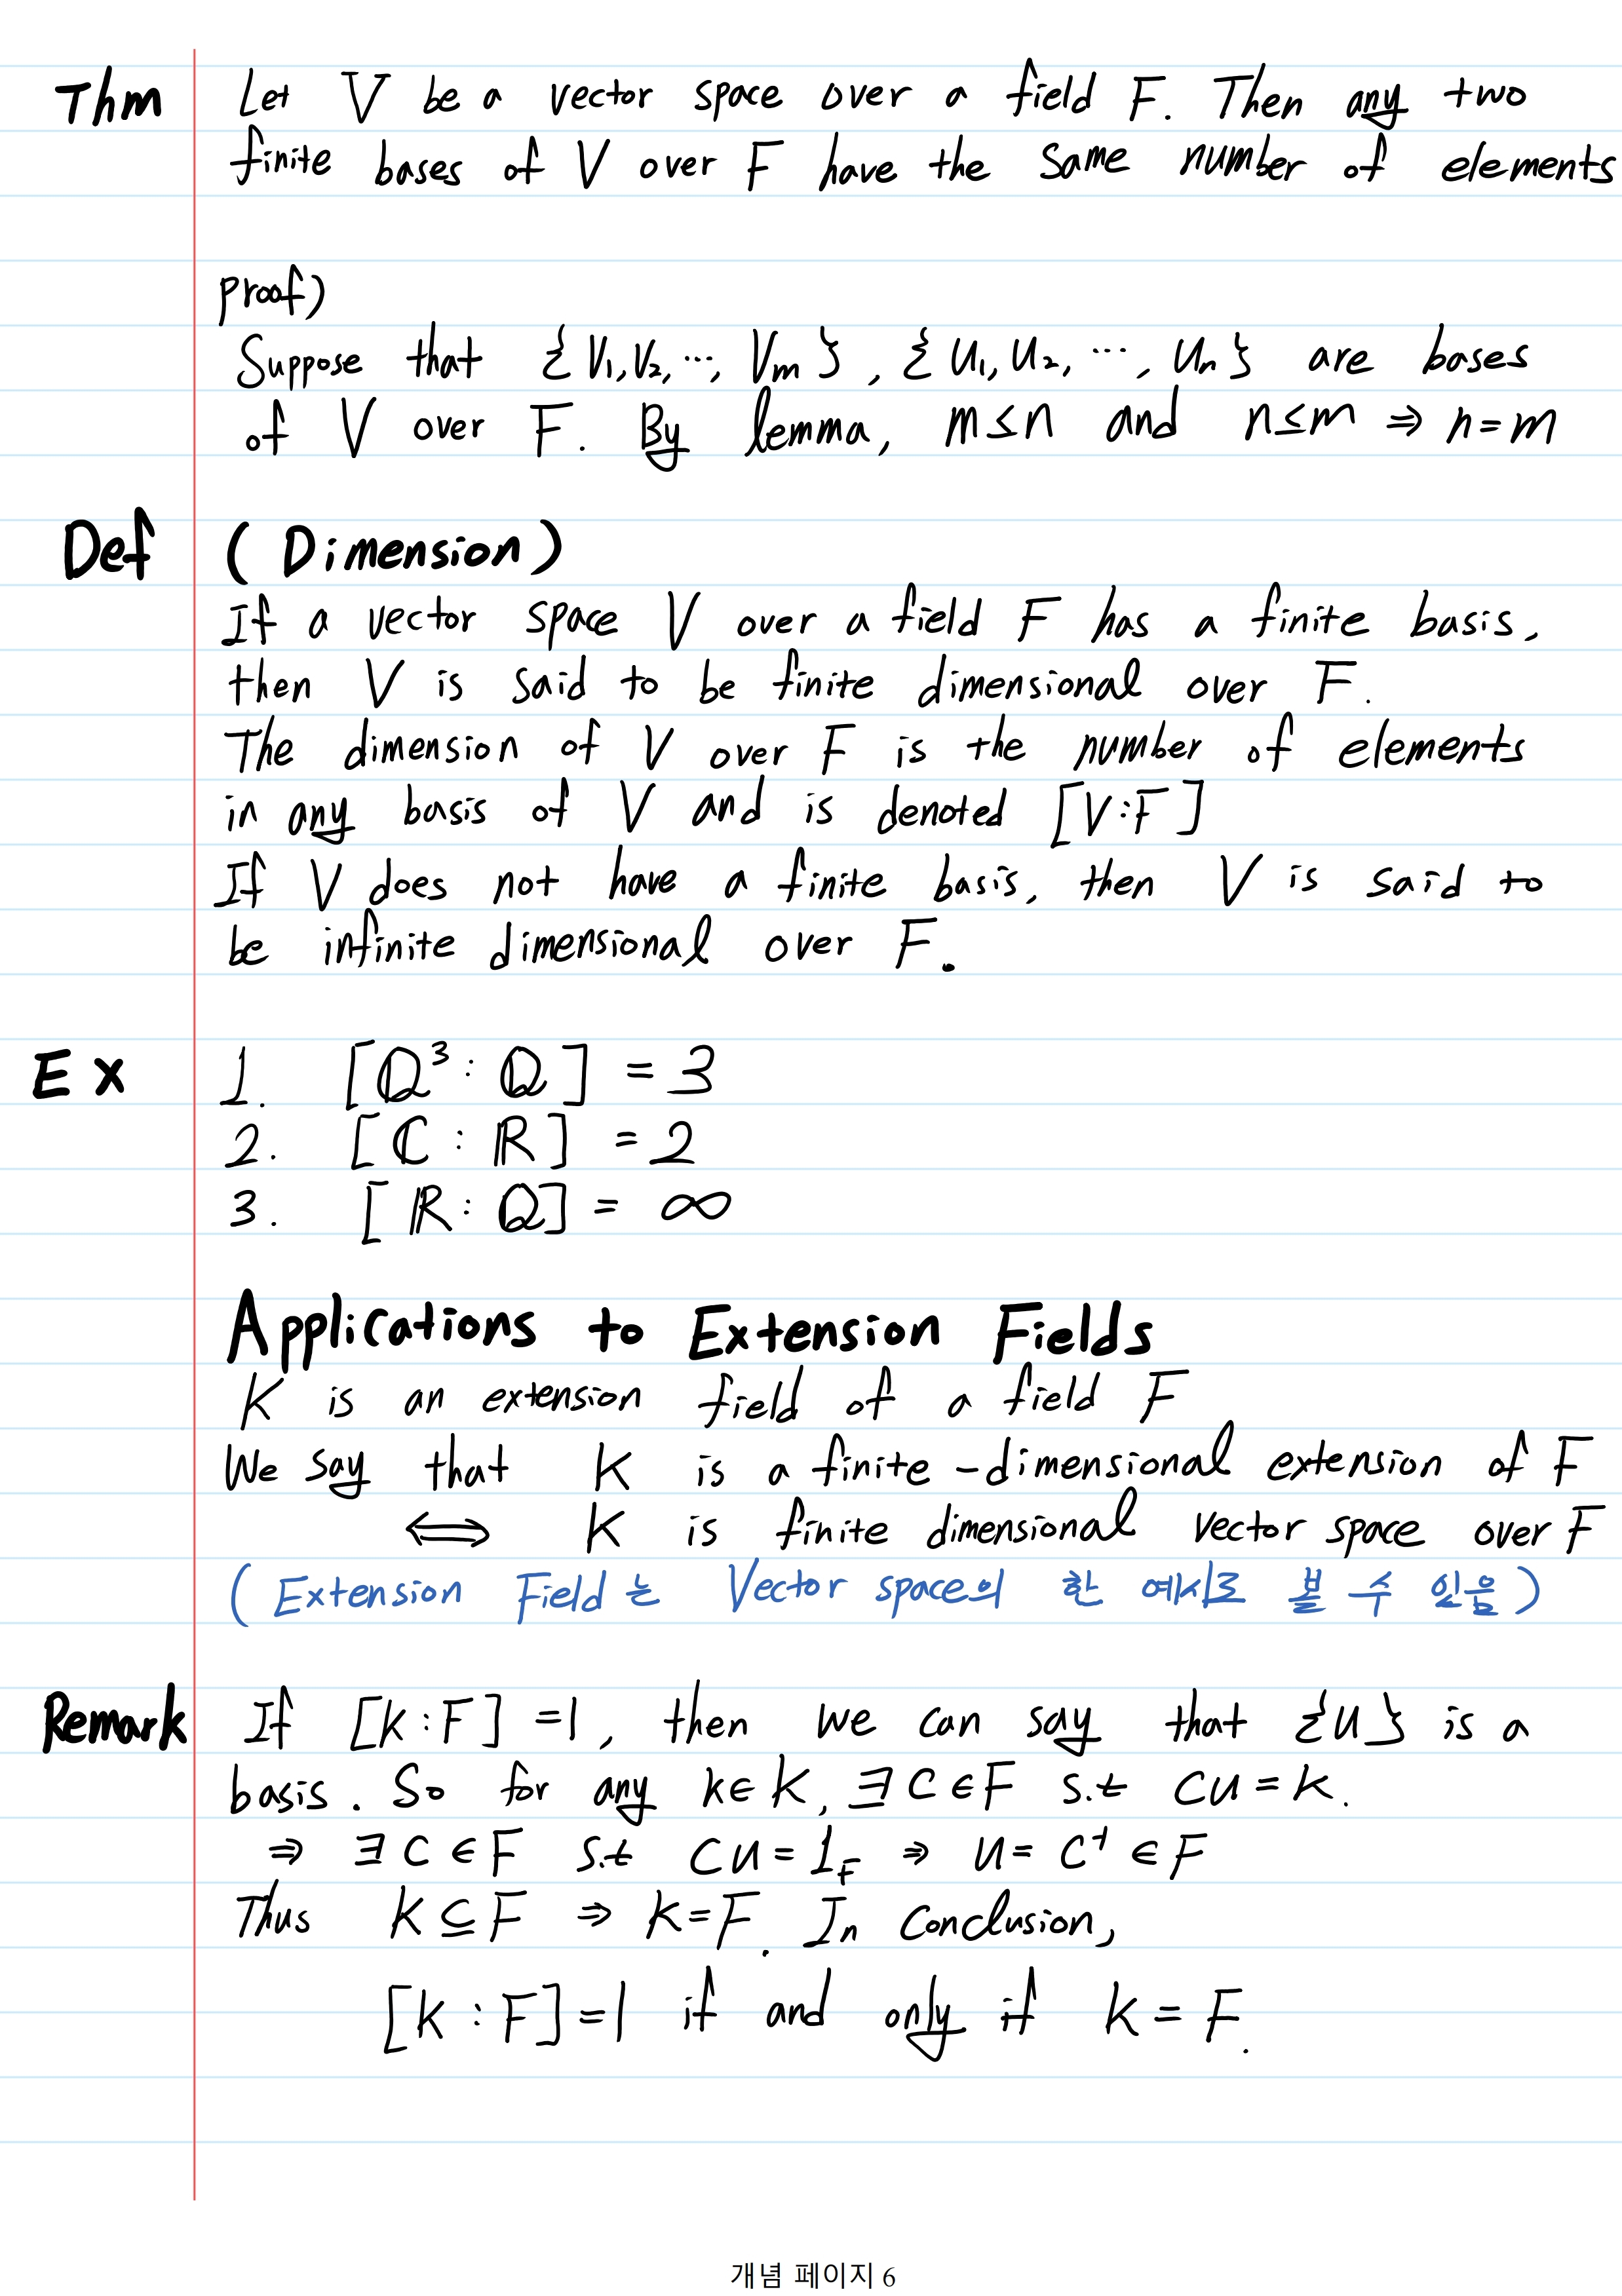 Thm Let V be a vector space over a field F. Then any two
finite bases of V over F have the same number of elements
proof)
Suppose that {V₁, V₂, ⋯, Vₘ}, {u₁, u₂, ⋯, uₙ} are bases
of V over F. By lemma, m≤n and n≤m ⇒ n=m
Def (Dimension)
If a vector space V over a field F has a finite basis,
then V is said to be finite dimensional over F.
The dimension of V over F is the number of elements
in any basis of V and is denoted [V:F]
If V does not have a finite basis, then V is said to
be infinite dimensional over F.
Ex 1. [ℚ³ : ℚ] = 3
2. [ℂ : ℝ] = 2
3. [ℝ : ℚ] = ∞
Applications to Extension Fields
K is an extension field of a field F
We say that K is a finite-dimensional extension of F
⟺ K is finite dimensional vector space over F
(Extension Field는 Vector space의 한 예시로 볼 수 있음)
Remark If [K:F]=1, then we can say that {u} is a
basis. So for any k∈K, ∃c∈F s.t cu=k.
⇒ ∃c∈F s.t cu=1_F ⇒ u=c⁻¹∈F
Thus K⊆F ⇒ K=F. In Conclusion,
[K:F]=1 if and only if K=F.
개념 페이지 6